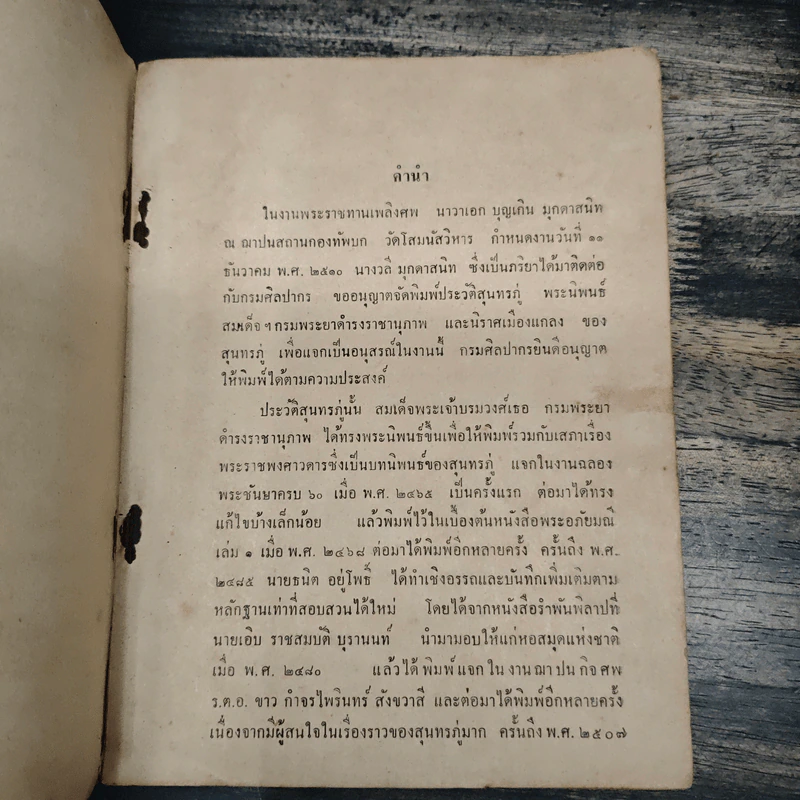 คำนำ
ในงานพระราชทานเพลิงศพ นาวาเอก บุญเกิน มุกดาสนิท
ณ ฌาปนสถานกองทัพบก วัดโสมนัสวิหาร กำหนดงานวันที่ ๑๑
ธันวาคม พ.ศ. ๒๕๑๐ นางวลี มุกดาสนิท ซึ่งเป็นภริยาได้มาติดต่อ
กับกรมศิลปากร ขออนุญาตจัดพิมพ์ประวัติสุนทรภู่ พระนิพนธ์
สมเด็จ ฯ กรมพระยาดำรงราชานุภาพ และนิราศเมืองแกลง ของ
สุนทรภู่ เพื่อแจกเป็นอนุสรณ์ในงานนี้ กรมศิลปากรยินดีอนุญาต
ให้พิมพ์ได้ตามความประสงค์
ประวัติสุนทรภู่นั้น สมเด็จพระเจ้าบรมวงศ์เธอ กรมพระยา
ดำรงราชานุภาพ ได้ทรงพระนิพนธ์ขึ้นเพื่อให้พิมพ์รวมกับเสภาเรื่อง
พระราชพงศาวดารซึ่งเป็นบทนิพนธ์ของสุนทรภู่ แจกในงานฉลอง
พระชันษาครบ ๖๐ เมื่อ พ.ศ. ๒๔๖๕ เป็นครั้งแรก ต่อมาได้ทรง
แก้ไขบ้างเล็กน้อย แล้วพิมพ์ไว้ในเบื้องต้นหนังสือพระอภัยมณี
เล่ม ๑ เมื่อ พ.ศ. ๒๔๖๘ ต่อมาได้พิมพ์อีกหลายครั้ง ครั้นถึง พ.ศ.
๒๔๘๕ นายธนิต อยู่โพธิ์ ได้ทำเชิงอรรถและบันทึกเพิ่มเติมตาม
หลักฐานเท่าที่สอบสวนได้ใหม่ โดยได้จากหนังสือรำพันพิลาปที่
นายเอิบ ราชสมบัติ บุรานนท์ นำมามอบให้แก่หอสมุดแห่งชาติ
เมื่อ พ.ศ. ๒๔๘๐ แล้วได้พิมพ์แจกในงานฌาปนกิจศพ
ร.ต.อ. ขาว กำจรไพรินทร์ สังขวาสี และต่อมาได้พิมพ์อีกหลายครั้ง
เนื่องจากมีผู้สนใจในเรื่องราวของสุนทรภู่มาก ครั้นถึง พ.ศ. ๒๕๐๗